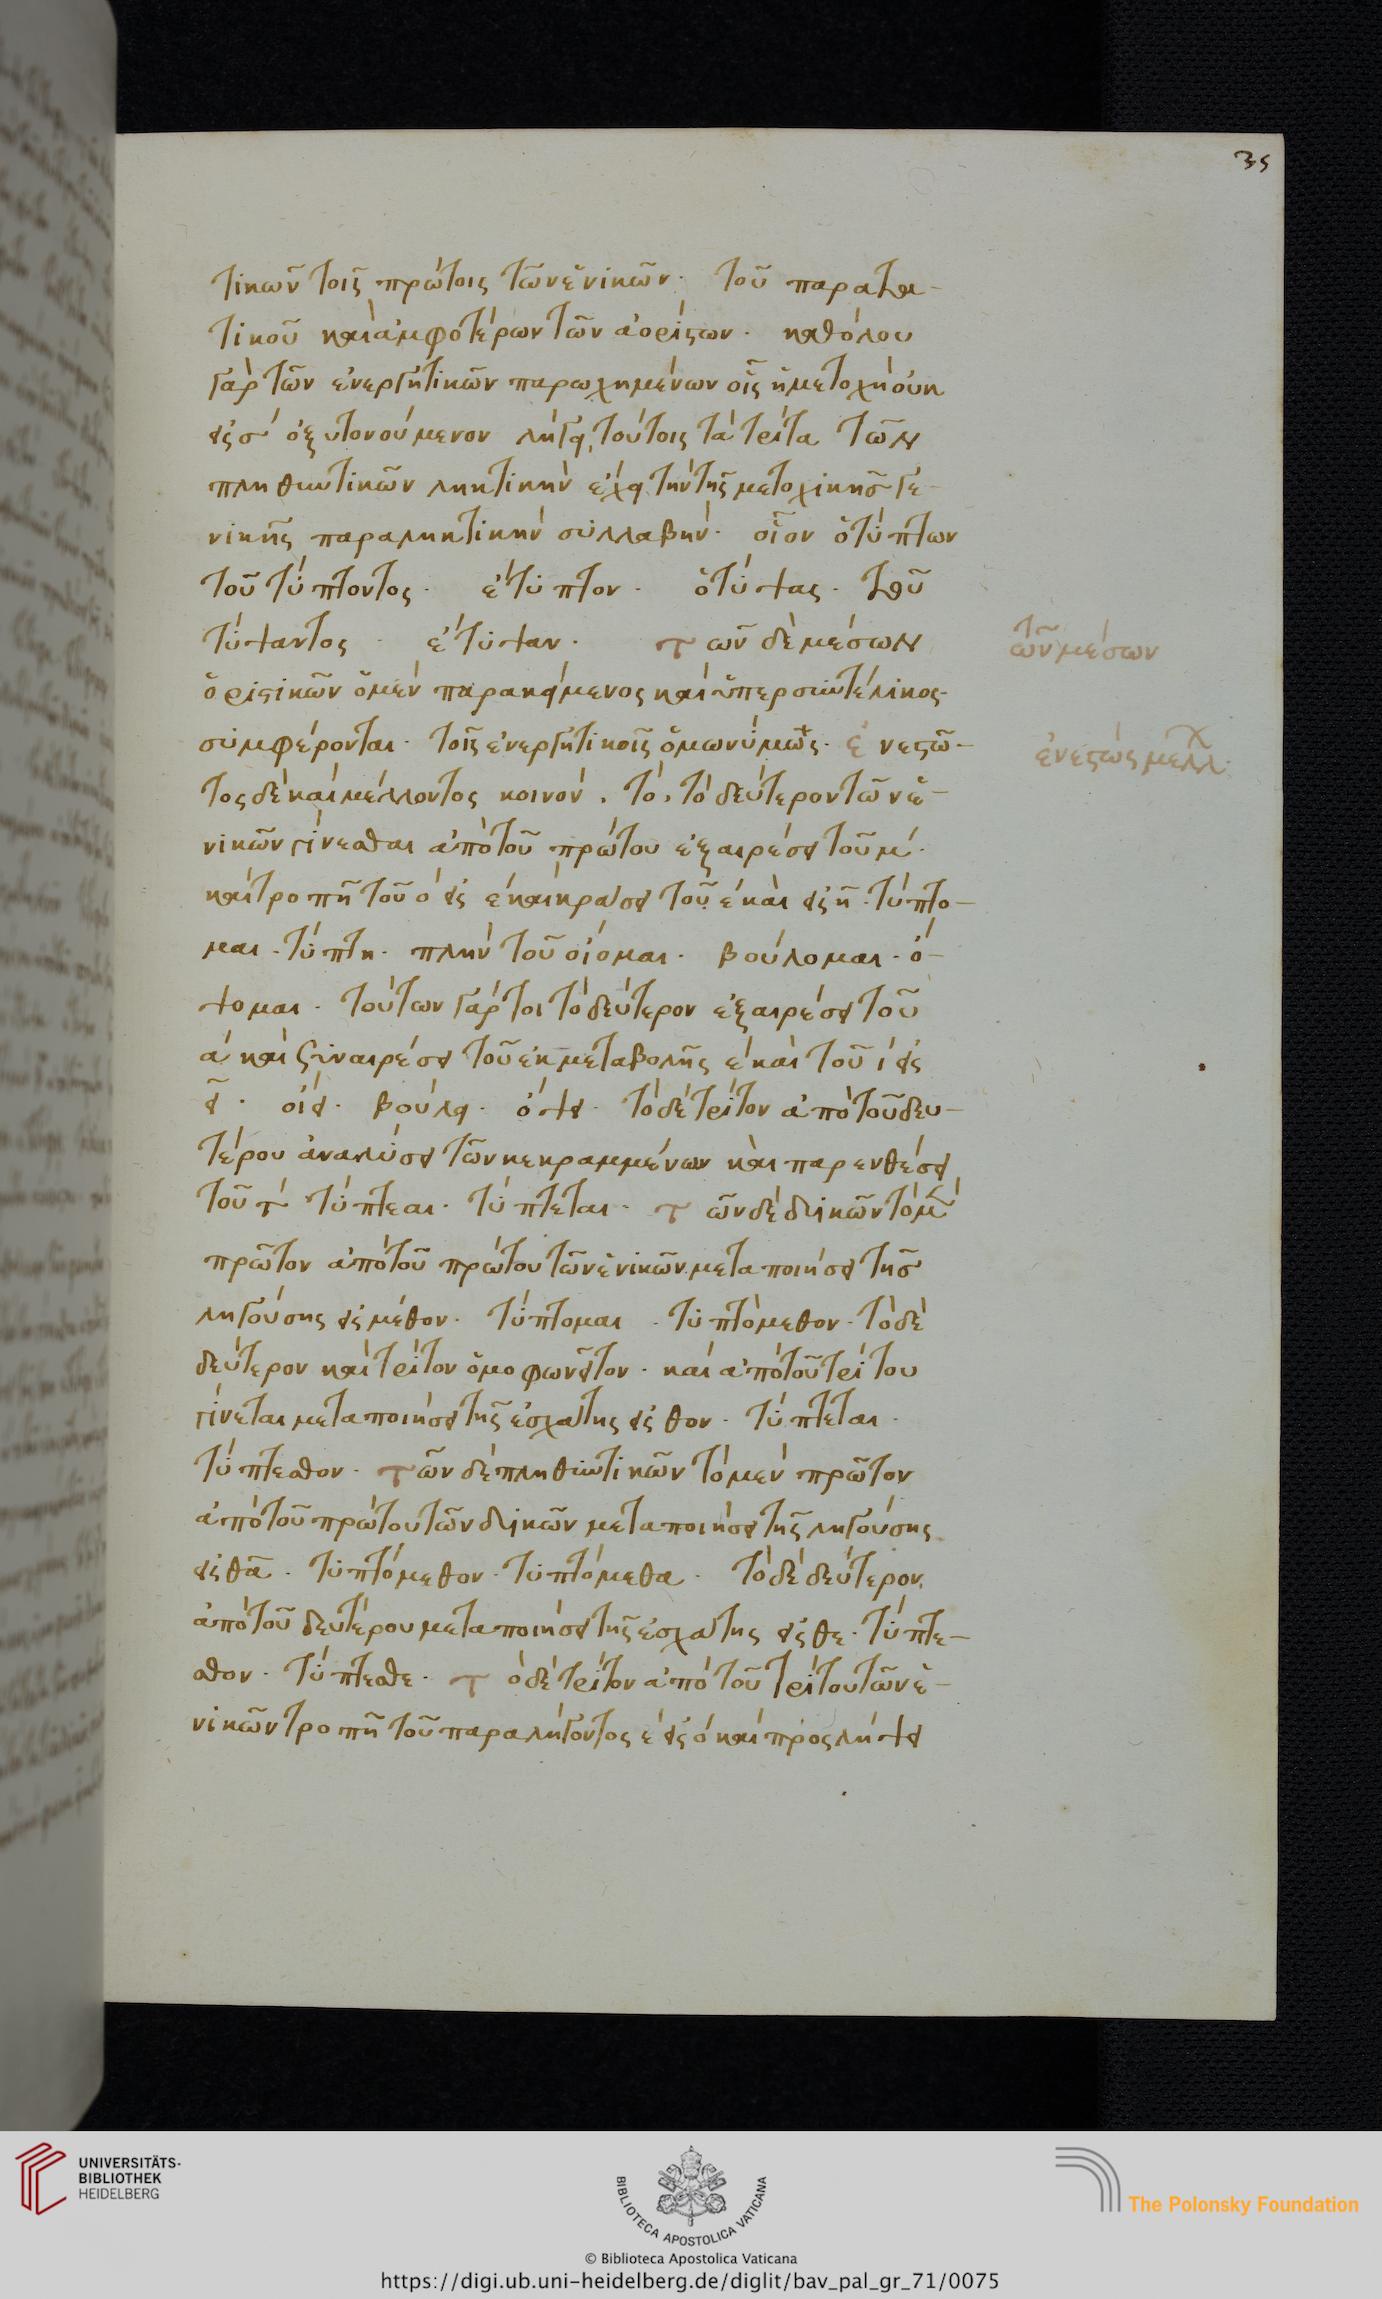 35
τικῶν τοῖς πρώτοις τῶν ἑνικῶν· τοῦ παρατα-
τικοῦ καὶ ἀμφοτέρων τῶν ἀορίστων· καθόλου
γὰρ τῶν ἐνεργητικῶν παρωχημένων οἷς ἡ μετοχὴ οὐκ
εἰς σ' ὀξυτονούμενον λήγει, τούτοις τὰ τρίτα τῶν
πληθυντικῶν ληκτικὴν ἔχει τὴν τῆς μετοχικῆς γε-
νικῆς παραληκτικὴν συλλαβήν· οἷον ὁ τύπτων
τοῦ τύπτοντος· ἔτυπτον· ὁ τύψας· τοῦ
τύψαντος· ἔτυψαν· τῶν δὲ μέσων
τῶν μέσων
ὁριστικῶν ὁ μὲν παρακείμενος καὶ ὑπερσυντέλικος
συμφέρονται τοῖς ἐνεργητικοῖς ὁμωνύμως· ἐνεστῶ-
ἐνεστὼς μελλ
τος δὲ καὶ μέλλοντος κοινόν· τό, τὸ δεύτερον τῶν ἑ-
νικῶν γίνεσθαι ἀπὸ τοῦ πρώτου ἐξαιρέσει τοῦ μ'
καὶ τροπῇ τοῦ ο' εἰς ε' καὶ κράσει τοῦ ε' καὶ εἰς η· τύπτο-
μαι· τύπτη· πλὴν τοῦ οἴομαι· βούλομαι· ὄ-
ψομαι· τούτων γάρ τοι τὸ δεύτερον ἐξαιρέσει τοῦ
α' καὶ συναιρέσει τοῦ ἐκ μεταβολῆς ε' καὶ τοῦ ι' εἰς
ει· οἴει· βούλει· ὄψει· τὸ δὲ τρίτον ἀπὸ τοῦ δευ-
τέρου ἀναλύσει τῶν κεκραμμένων καὶ παρενθέσει
τοῦ τ' τύπτεαι· τύπτεται· τῶν δὲ δυϊκῶν τὸ μὲν
πρῶτον ἀπὸ τοῦ πρώτου τῶν ἑνικῶν μεταποιήσει τῆς
ληγούσης εἰς μεθον· τύπτομαι· τυπτόμεθον· τὸ δὲ
δεύτερον καὶ τρίτον ὁμοφωνεῖτον· καὶ ἀπὸ τοῦ τρίτου
γίνεται μεταποιήσει τῆς ἐσχάτης εἰς θον· τύπτεται·
τύπτεσθον· τῶν δὲ πληθυντικῶν τὸ μὲν πρῶτον
ἀπὸ τοῦ πρώτου τῶν δυϊκῶν μεταποιήσει τῆς ληγούσης
εἰς θα· τυπτόμεθον· τυπτόμεθα· τὸ δὲ δεύτερον
ἀπὸ τοῦ δευτέρου μεταποιήσει τῆς ἐσχάτης εἰς θε· τύπτε-
σθον· τύπτεσθε· τὸ δὲ τρίτον ἀπὸ τοῦ τρίτου τῶν ἑ-
νικῶν τροπῇ τοῦ παραλήγοντος ε' εἰς ο' καὶ προσλήψει
UNIVERSITÄTS-
BIBLIOTHEK
HEIDELBERG
BIBLIOTECA APOSTOLICA VATICANA
© Biblioteca Apostolica Vaticana
The Polonsky Foundation
https://digi.ub.uni-heidelberg.de/diglit/bav_pal_gr_71/0075